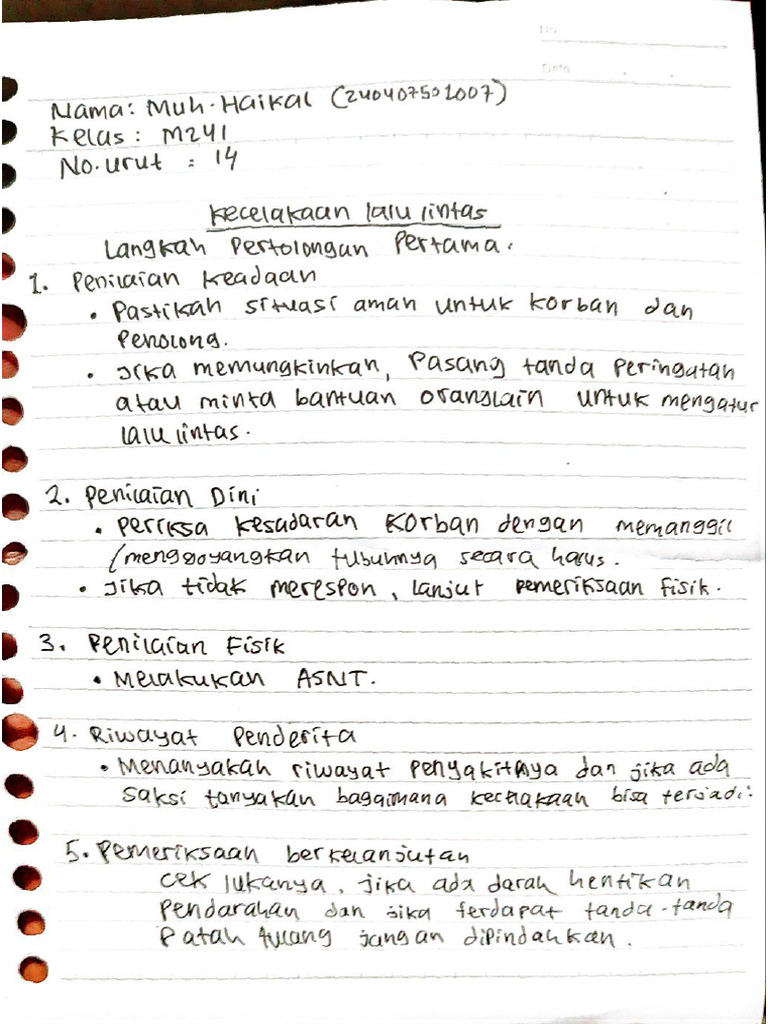 No
Date
Nama: Muh. Haikal (240407501007)
Kelas: M241
No. urut : 14
Kecelakaan lalu lintas
Langkah Pertolongan Pertama.
1. Penilaian Keadaan
• Pastikan situasi aman untuk korban dan
Penolong.
• Jika memungkinkan, Pasang tanda peringatan
atau minta bantuan orang lain untuk mengatur
lalu lintas.
2. Penilaian Dini
• Periksa kesadaran korban dengan memanggil
/menggoyangkan tubuhnya secara halus.
• Jika tidak merespon, lanjut pemeriksaan fisik.
3. Penilaian Fisik
• Melakukan ASNT.
4. Riwayat Penderita
• Menanyakan riwayat penyakitnya dan jika ada
saksi tanyakan bagaimana kecelakaan bisa terjadi.
5. Pemeriksaan berkelanjutan
cek lukanya, jika ada darah hentikan
Pendarahan dan jika terdapat tanda-tanda
Patah tulang jangan dipindahkan.